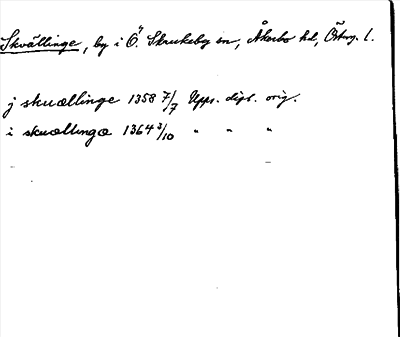 Skvällinge, by i Ö. Skrukeby sn, Åkerbo hd, Österg. l.
j skuællinge 1358 7/7 Upps. dipl. orig.
i skuællinga 1364 3/10 " " "